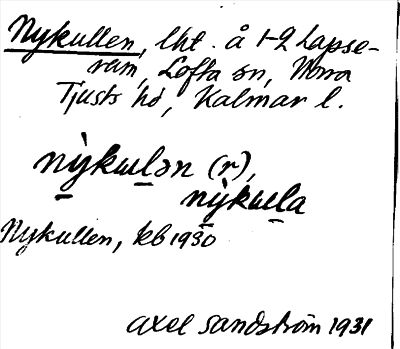 Nykullen, lht. å 1-2 Lapse-
rum, Lofta sn, Norra
Tjusts hd, Kalmar l.
nỳkɯlən (r),
nỳkɯla
Nykullen, kb 1930
Axel Sandström 1931